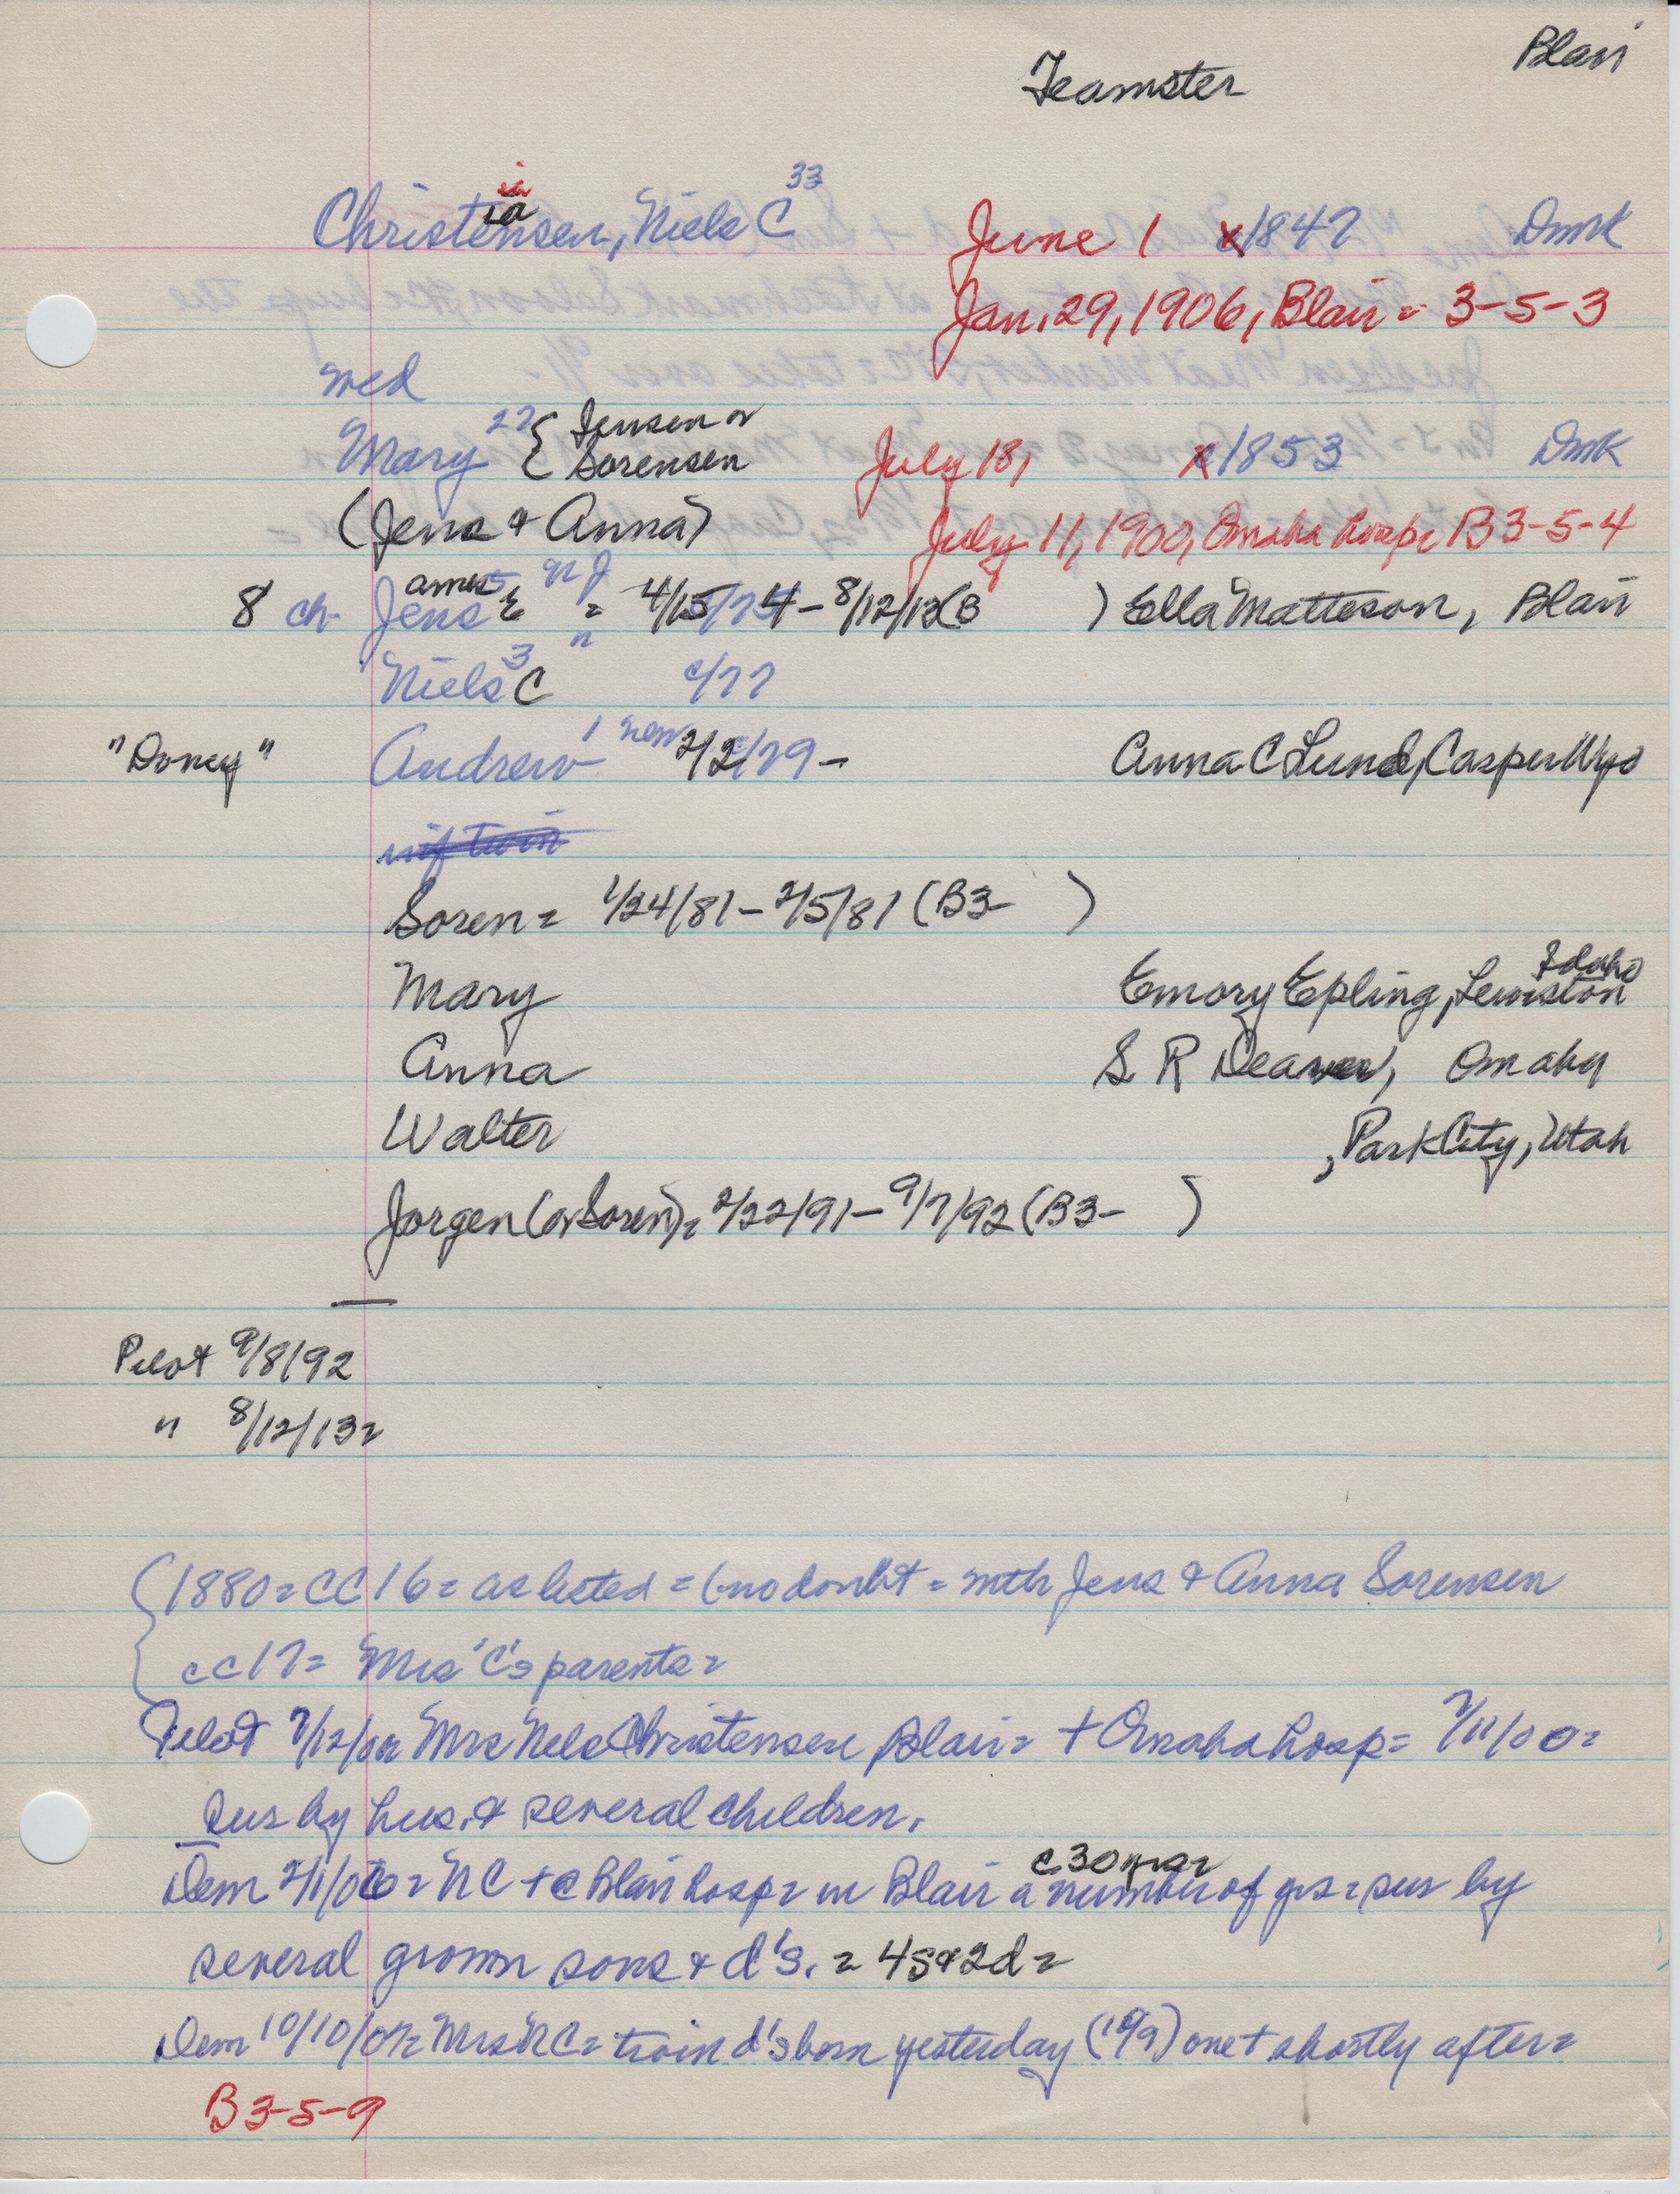 Blair
Teamster
Christensen, Niels C 33 June 1 1847 Dmk
ia
ia
Jan. 29, 1906, Blair = 3-5-3
med
Mary 27 { Jensen or Sorensen July 18, 1853 Dmk
(Jens & Anna) July 11, 1900, Omaha hosp = B 3-5-4
8 ch. Jens ames 5 E = 4/15/74 - 8/12/13 (B ) Ella Matteson, Blair
Niels 3 C c/77
"Doney" Andrew 1 2/2/79 - Anna C Lund, Casper Wyo
inf twin
Soren = 1/24/81 - 2/5/81 (B3- )
Mary Emory Epling, Lewiston Idaho
Anna S R Deaver, Omaha
Walter , Park City, Utah
Jorgen (or Soren) = 2/22/91 - 9/7/92 (B3- )
Pilot 9/8/92
" 8/12/13 =
{ 1880 = CC 16 = as listed = (no doubt = mth Jens & Anna Sorensen
cc 17 = Mrs 'C's parents =
Pilot 7/12/00 Mrs Nels Christensen Blair = + Omaha hosp = 7/11/00 =
Sur by hus. & several children.
Dem 2/1/06 = NC + @ Blair hosp = in Blair a number of yrs = sur by
c 30 yrs =
several grown sons & d's. = 4s & 2d =
Dem 10/10/07 = Mrs NC = twin d's born yesterday (10/9) one + shortly after =
B 3-5-9